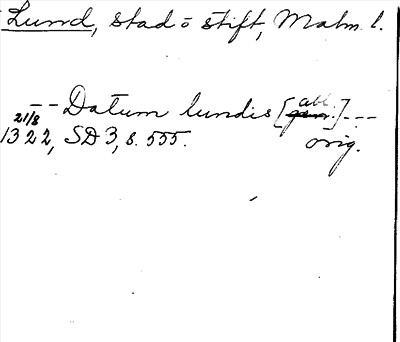 Lund, stad o stift, Malm. l.
abl.
-- Datum lundis [gen.] ---
21/8
1322, SD 3, s. 555. orig.